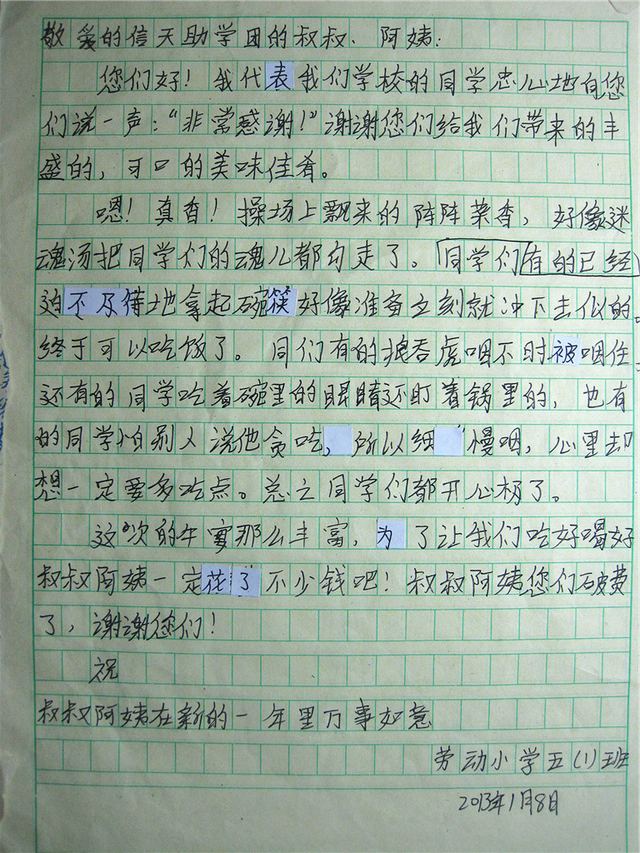 敬爱的信天助学团的叔叔、阿姨:
您们好!我代表我们学校的同学忠心地向您
们说一声:“非常感谢!”谢谢您们给我们带来的丰
盛的,可口的美味佳肴。
嗯!真香!操场上飘来的阵阵菜香,好像迷
魂汤把同学们的魂儿都勾走了。同学们有的已经
迫不及待地拿起碗筷好像准备立刻就冲下去似的。
终于可以吃饭了。同们有的狼吞虎咽不时被咽住
还有的同学吃着碗里的眼睛还盯着锅里的,也有
的同学怕别人说他贪吃,所以细慢咽,心里却
想一定要多吃点。总之同学们都开心极了。
这次的午宴那么丰富,为了让我们吃好喝好
叔叔阿姨一定花了不少钱吧!叔叔阿姨您们破费
了,谢谢您们!
祝
叔叔阿姨在新的一年里万事如意
劳动小学五(1)班
2013年1月8日